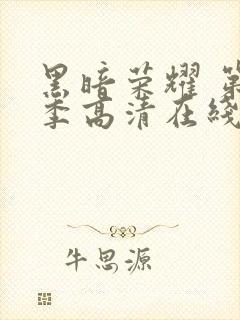 黑暗荣耀 第
季高清在线
牛思源